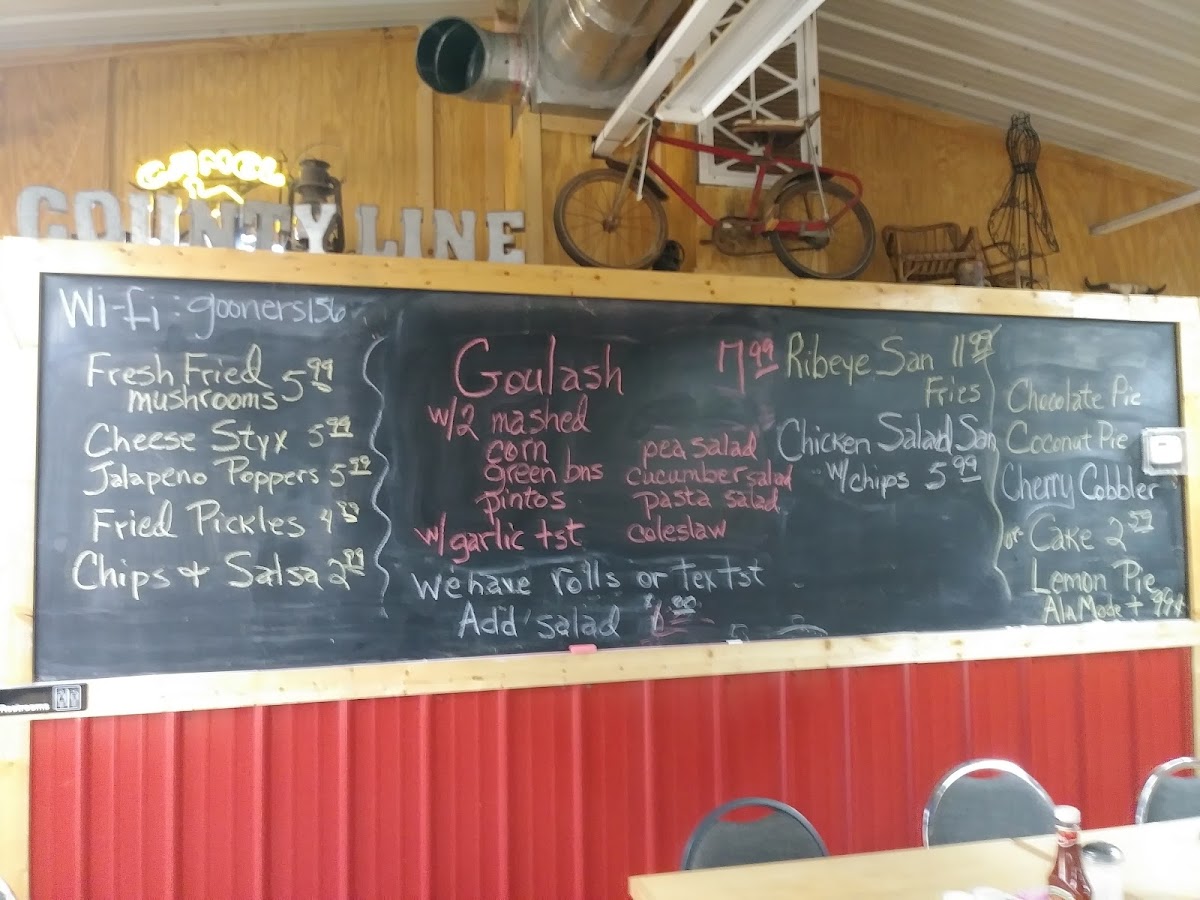 CAMEL
COUNTY LINE
Wi-fi: gooners156
Fresh Fried
mushrooms 5 99
Cheese Styx 5 99
Jalapeno Poppers 5 99
Fried Pickles 4 59
Chips + Salsa 2 99
Goulash 7 99
w/2 mashed
corn
green bns
pintos
w/garlic tst
pea salad
cucumber salad
pasta salad
coleslaw
We have rolls or tex tst
Add salad
Ribeye San 11 99
Fries
Chicken Salad San
w/chips 5 99
Chocolate Pie
Coconut Pie
Cherry Cobbler
or Cake 2 59
Lemon Pie
Ala Mode + 99¢
Restrooms